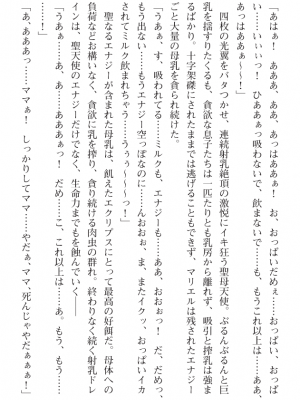 「あはぁ～～！　あっ、ああぁぁっ！　お、おっぱいだめぇ……、おっぱい
い……いぃぃっ！　ひああぁっ吸わないで、飲まないでぇ……も、もうこれ以上は……ああ、
あっはああぁっ！」
　四枚の光翼をバタつかせ、連続射乳絶頂の激悦にイキ狂う聖母天使。ぷるんぷるんと巨
乳を揺すりたくるも、貪欲な息子たちは一匹たりとも乳房から離れず、吸引と搾乳は強ま
るばかり。十字架磔にされたままでは逃げることもできず、マリエルは残されたエナジー
ごと大量の母乳を貪られ続けた。
「うぁぁ、す、吸われてる……ミルクも、エナジーも……ああ、おおぉっ！　だ、だめっ、
もう出ない……もうエナジー空っぽなのに……んおおぉ、ま、またイクッ、おっぱいイカ
されてミルク飲まれちゃう……うぅぅ～～～っ！」
　聖なるエナジーが含まれた母乳は、飢えたエクリプスにとって最高の好餌だ。母体への
負荷などお構いなく、貪欲に乳を搾り、貪り続ける肉虫の群れ。終わりなく続く射乳ドレ
インは、聖天使のエナジーだけでなく、生命力までもを蝕んでいく――
「うああ、あ、あ……あああぁっ！　だめ……こ、これ以上は……あ。もう、もう……
……っ！」
「あ、あああっ……ママぁ！　しっかりしてママ……やだぁ、ママ、死んじゃやだぁぁぁ！」